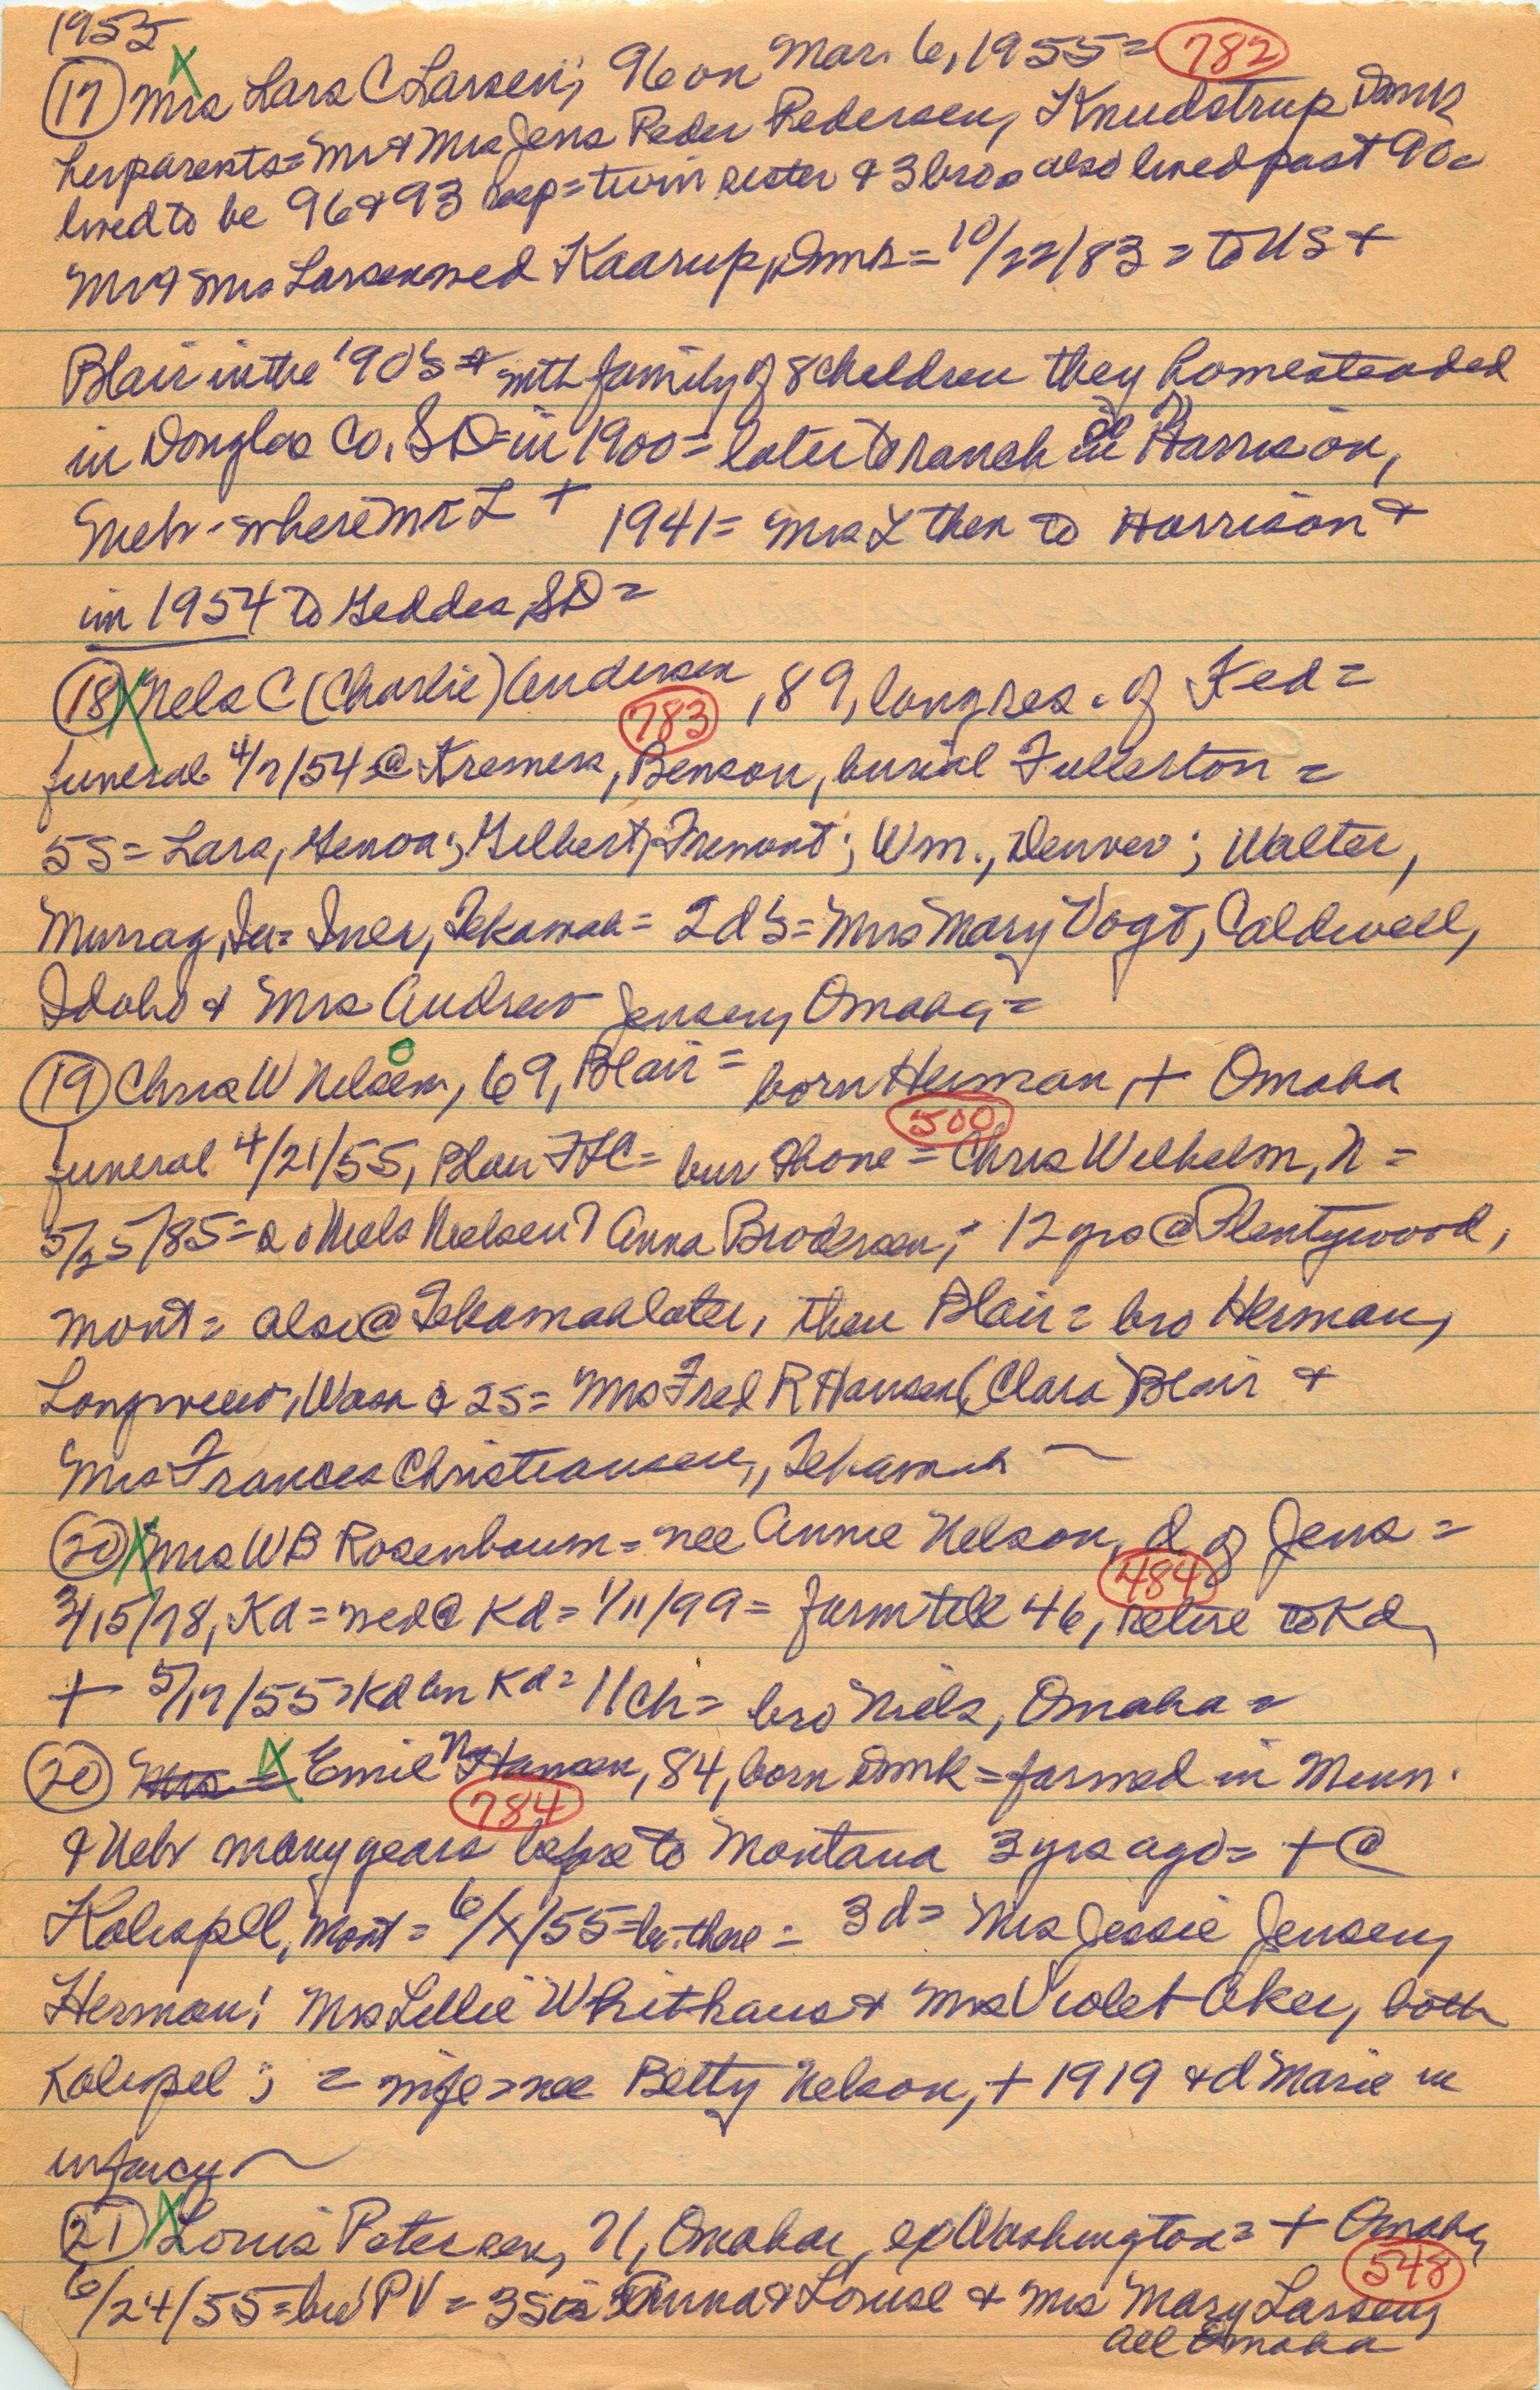 1955
(17) X Mrs Lars C Larsen, 96 on Mar. 6, 1955 = (782)
her parents = Mr & Mrs Jens Peder Pedersen, Knudstrup Dmk
lived to be 96 & 93 resp = twin sister & 3 bros also lived past 90 =
Mr & Mrs Larsen wed Kaarup, Dmk = 10/22/83 = to US +
Blair in the '90's & with family of 8 children they homesteaded
in Douglas Co. SD in 1900 = later to ranch Harrison,
Nebr - where Mr L + 1941 = Mrs L then to Harrison &
in 1954 to Geddes, SD =
(18) X Nels C (Charlie) Andersen, 89, long res. of Ked =
(783)
funeral 4/7/54 @ Kremers, Benson, burial Fullerton =
5S = Lars, Genoa; Gilbert, Fremont; Wm., Denver; Walter,
Murray, Ia = Iner, Tekamah = 2d's = Mrs Mary Vogt, Caldwell,
Idaho & Mrs Andrew Jensen, Omaha =
(19) Chris W Nelsen, 69, Blair = born Herman, + Omaha
(500)
funeral 4/21/55, Blair FLC = bur there = Chris Wilhelm, N =
5/25/85 = s o Niels Nielsen & Anna Brodersen; 12 yrs @ Plentywood,
Mont = also @ Tekamah later, then Blair = bro Herman,
Longview, Wash & 2S = Mrs Fred R Hansen (Clara) Blair &
Mrs Frances Christiansen, Tekamah
(20) X Mrs WB Rosenbaum = nee Annie Nelson, d of Jens =
(484)
3/15/78, Kd = wed @ Kd = 1/11/99 = farm till 46, retire to Kd,
+ 5/17/55 = Kd bur Kd = 11 ch = bro Niels, Omaha =
(20) Mrs = X Emil N Hansen, 84, born Dmk = farmed in Minn.
(784)
& Nebr many years before to Montana 3 yrs ago = + @
Kalispell, Mont = 6/X/55 = bur. there = 3d = Mrs Jessie Jensen,
Herman; Mrs Lillie Whithaus & Mrs Violet Aker, both
Kalispel; = wife = nee Betty Nelson, + 1919 & d Marie in
infancy
(21) X Louis Petersen, 71, Omaha, ex Washington = + Omaha,
(548)
6/24/55 = bur PV = 3 sis Anna & Louise & Mrs Mary Larsen,
all Omaha